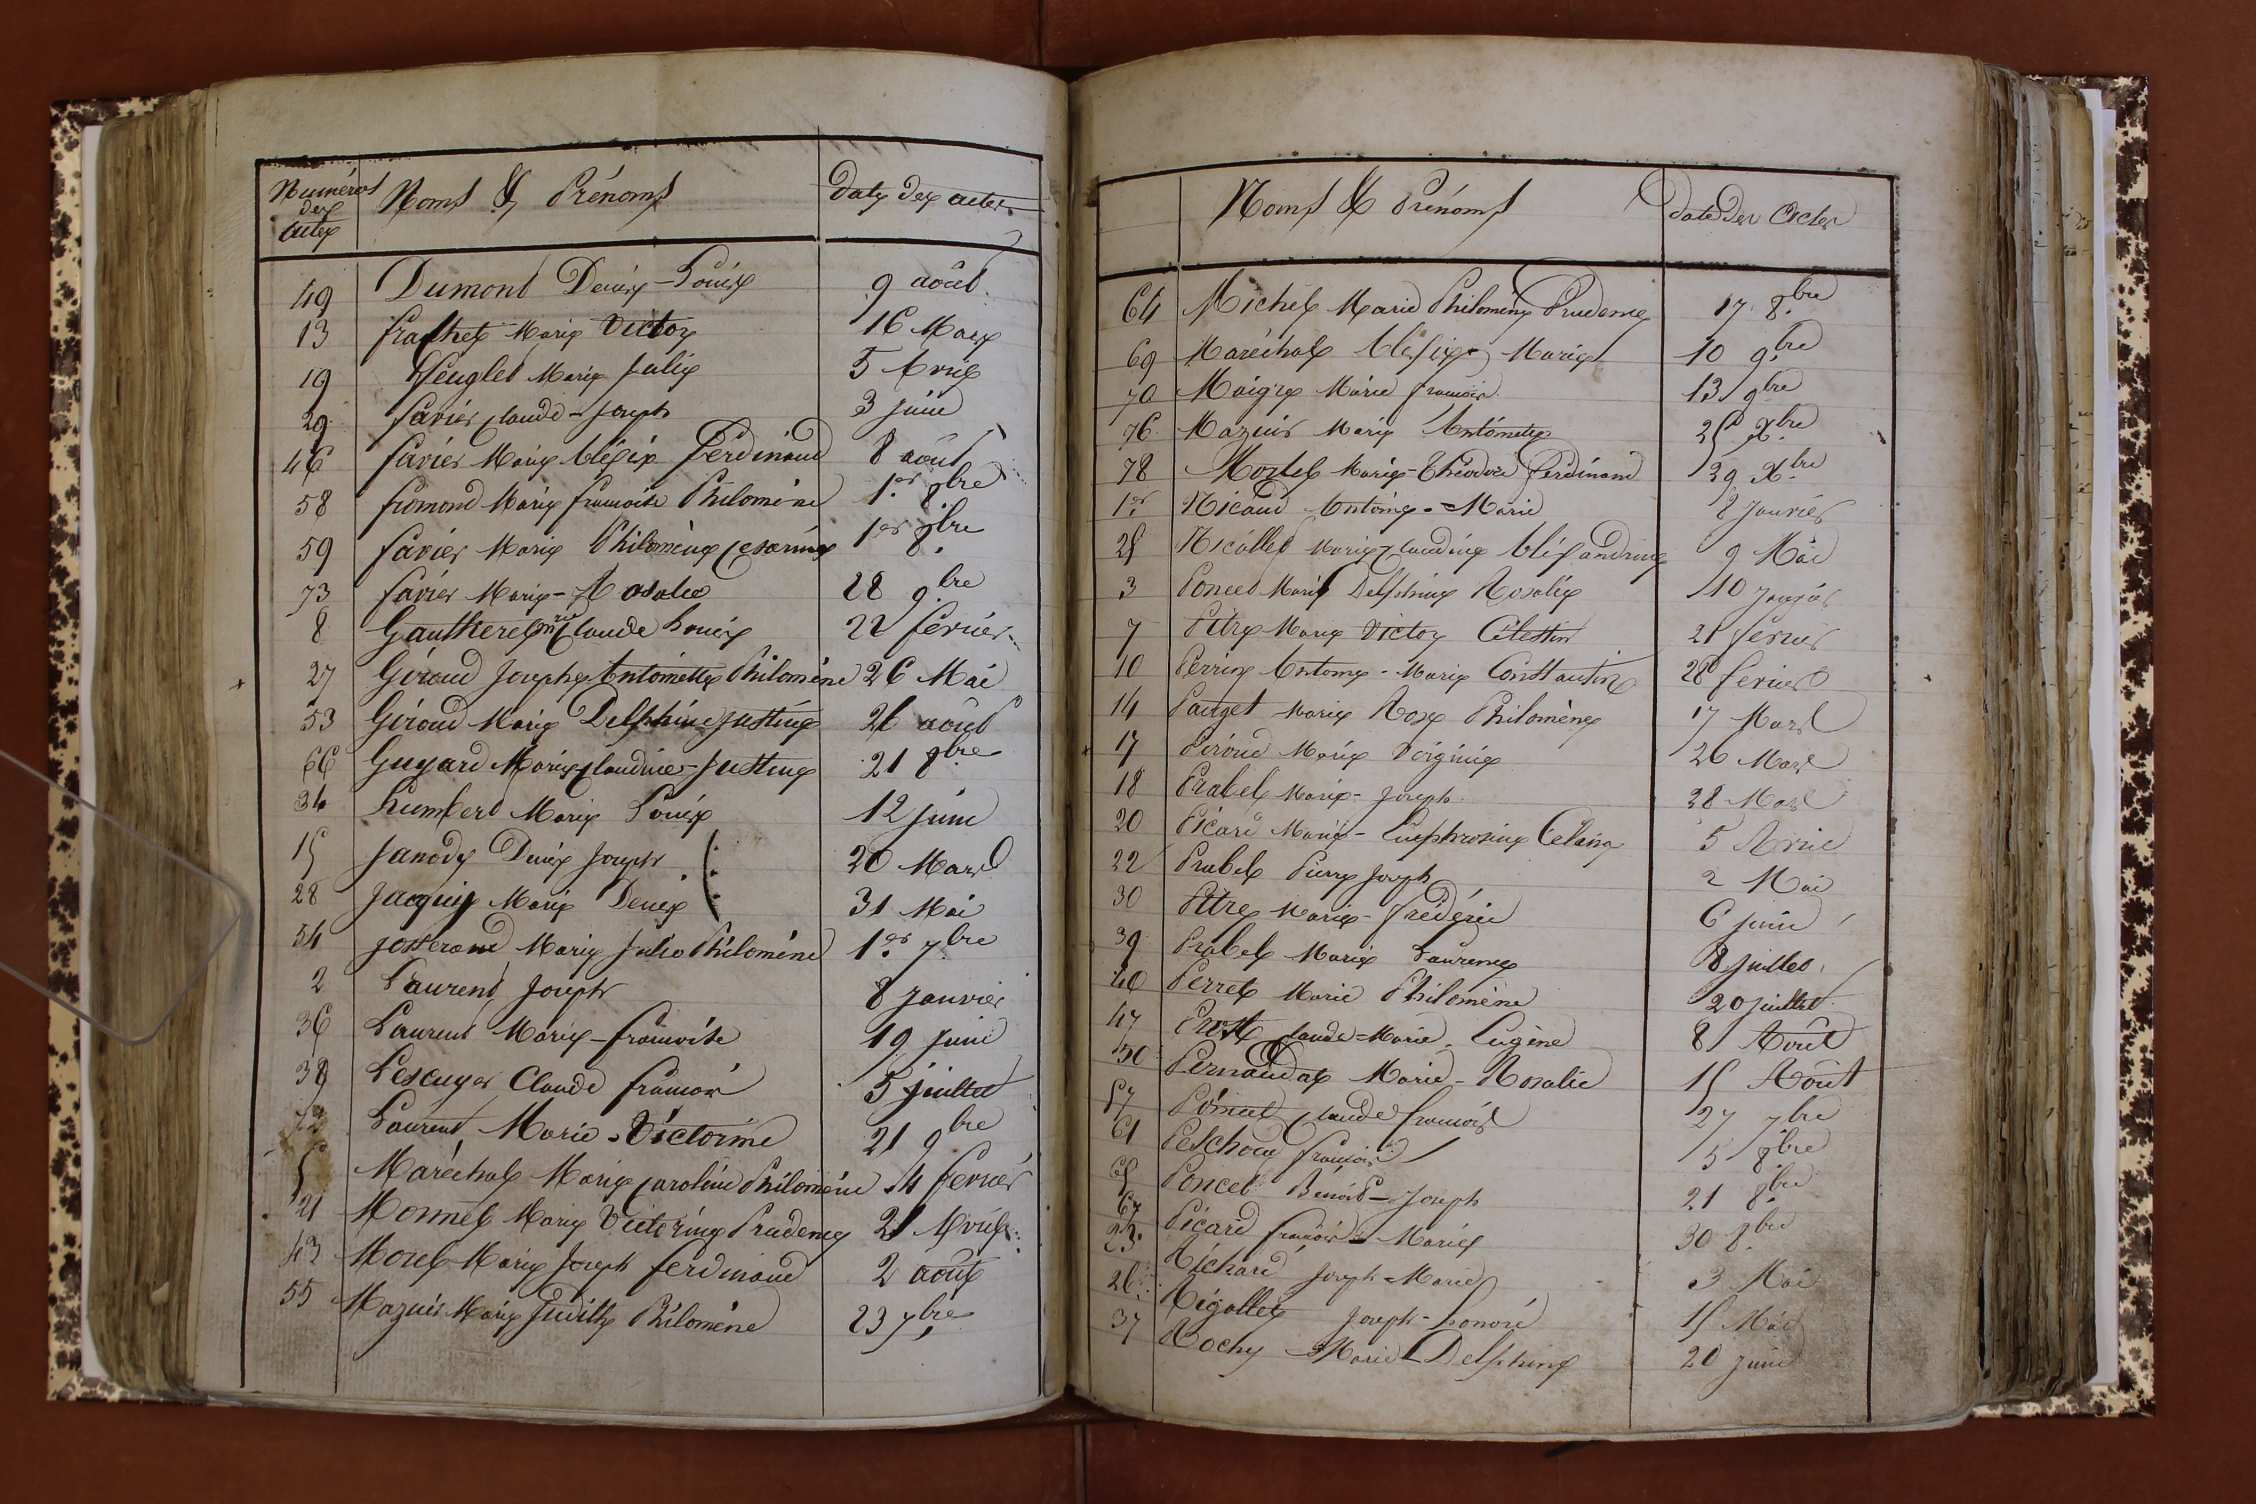 Numéros des actes Noms & Prénoms Dates des actes
49 Dumont Denis-Louis 9 août
13 Frachet Marie Victor 16 Mars
19 Feuglet Marie Julie 5 Avril
29 Favier Claude-Joseph 3 juin
46 Favier Marie Alexis Ferdinand 8 août
58 Fromond Marie Francoise Philomène 1er 8bre
59 Favier Marie Philomène Cesarine 1er 8bre
73 Favier Marie-Rosalie 28 9bre
8 Gautheret Claude Louis 22 février
27 Giroud Josephe Antoinette Philomène 26 Mai
53 Giroud Marie Delphine Justine 26 août
66 Guyard Marie Claudine-Justine 21 8bre
34 humbert Marie Louise 12 juin
15 Janody Denis Joseph 20 Mars
28 Jacquis Marie Denis 31 Mai
54 Josserand Marie Julie Philomène 1er 7bre
2 Laurent Joseph 8 Janvier
36 Laurent Marie-françoise 19 juin
38 Lescuyer Claude françois 5 juillet
72 Laurent Marie-Victorine 21 9bre
5 Maréchal Marie Caroline Philomène 4 février
21 Monnet Marie Victorine Prudence 21 Avril
43 Morel Marie Joseph ferdinand 2 août
55 Mazuir Marie Judith Philomène 23 7bre
Noms & Prénoms Dates des Actes
64 Michel Marie Philomène Prudence 17 8bre
69 Maréchal Alexis Marie 10 9bre
70 Maigre Marie francois 13 9bre
76 Mazuir Marie Antoinette 25 Xbre
78 Morel Marie-Théodore Ferdinand 29 Xbre
1er Nicaud Antoine-Marie 8 Janvier
25 Nicollet Marie Claudine Aléxandrine 9 Mai
3 Poncet Marie Delphine Rosalie 10 Janvier
7 Pitre Marie Victor Célestin 21 fevrier
10 Perrin Antoine-Marie Constantin 28 fevrier
14 Pauget Marie Rose Philomène 17 Mars
17 Giroud Marie Virginie 26 Mars
18 Prabel Marie-Joseph 28 Mars
20 Picard Marie-Euphrosine Célina 5 Avril
22 Prabel Pierre Joseph 2 Mai
30 Pitre Marie-Frédéric 6 juin
39 Prabel Marie Laurence 8 juillet
40 Perret Marie Philomène 20 juillet
47 Prost Claude-Marie-Eugène 8 Août
50 Pernaudat Marie-Rosalie 15 Août
57 Poncet Claude françois 27 7bre
61 Pelchoud françois 5 8bre
65 Poncet Bénoit-Joseph 21 8bre
67 Picard françois-Marie 30 8bre
23 Richard Joseph-Marie 3 Mai
26 Rigollet Joseph-honoré 15 Mai
37 Rochy Marie-Delphine 20 juin